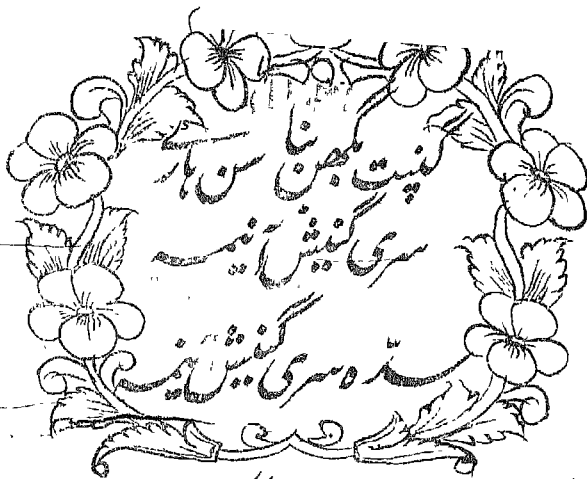 گنپت بگھن بناسن ہاری
سری گنیش آنیمہ
سدہ سری گنیش آنیمہ